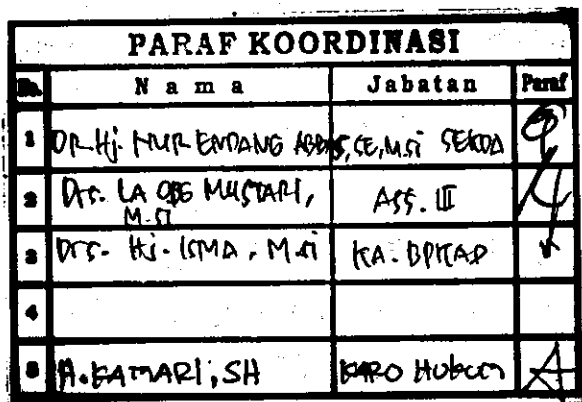 PARAF KOORDINASI
No. N a m a Jabatan Paraf
1 DR. Hj. NUR ENDANG ABBAS, SE, M.Si SEKDA
2 Drs. LA ODE MUSTARI, M.Si ASS. III
3 Drs. Hj. ISMA, M.Si KA. BPKAD
4
5 H. KAMARI, SH KARO HUKUM